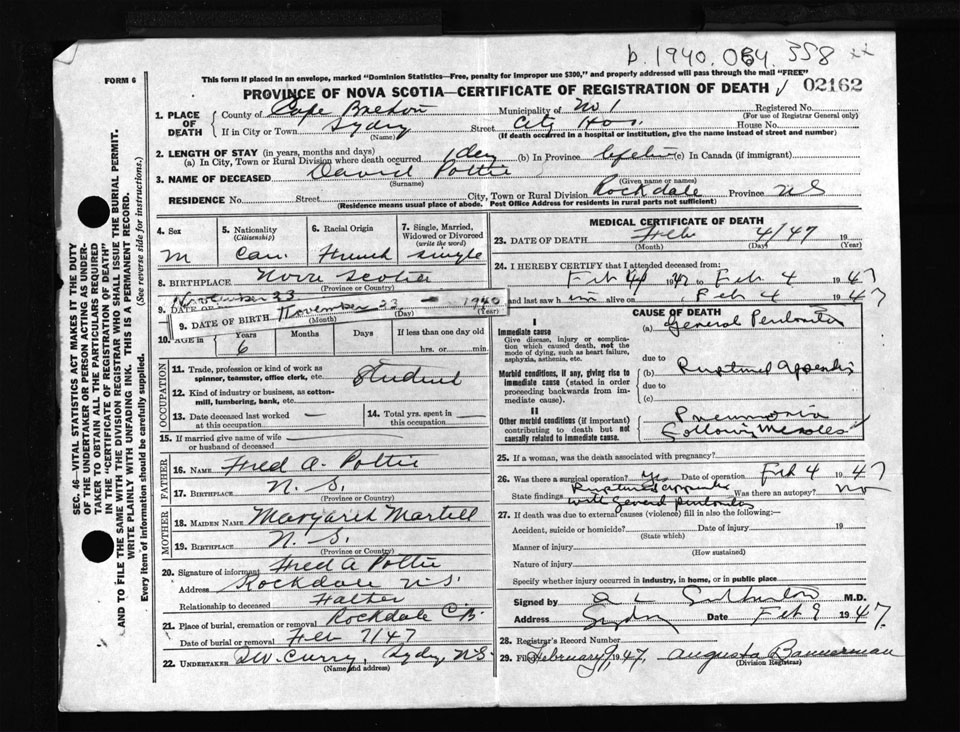 b. 1940. 064. 358 xx
FORM 6
This form if placed in an envelope, marked "Dominion Statistics—Free, penalty for improper use $300," and properly addressed will pass through the mail "FREE"
PROVINCE OF NOVA SCOTIA—CERTIFICATE OF REGISTRATION OF DEATH 02162
SEC. 46—VITAL STATISTICS ACT MAKES IT THE DUTY
OF THE UNDERTAKER OR PERSON ACTING AS UNDER-
TAKER TO OBTAIN ALL THE PARTICULARS REQUIRED
IN THE "CERTIFICATE OF REGISTRATION OF DEATH"
AND TO FILE THE SAME WITH THE DIVISION REGISTRAR WHO SHALL ISSUE THE BURIAL PERMIT.
WRITE PLAINLY WITH UNFADING INK. THIS IS A PERMANENT RECORD.
Every item of information should be carefully supplied. (See reverse side for instructions.)
1. PLACE OF DEATH
County of Cape Breton Municipality of No 1 Registered No.
(For use of Registrar General only)
If in City or Town Sydney Street City Hos. House No.
(Name) (If death occurred in a hospital or institution, give the name instead of street and number)
2. LENGTH OF STAY (in years, months and days)
(a) In City, Town or Rural Division where death occurred 1 day (b) In Province lifetime (c) In Canada (if immigrant)
3. NAME OF DECEASED David Pottie
(Surname) (Given name or names)
RESIDENCE No. Street City, Town or Rural Division Rockdale Province N S
(Residence means usual place of abode. Post Office Address for residents in rural parts not sufficient)
4. Sex
M
5. Nationality
(Citizenship)
Can.
6. Racial Origin
French
7. Single, Married,
Widowed or Divorced
(write the word)
single
8. BIRTHPLACE Nova Scotia
(Province or Country)
November 23
9. DATE OF
9. DATE OF BIRTH November 23 - 1940
(Month) (Day) (Year)
10. AGE in Years Months Days If less than one day old
6 hrs. or min.
OCCUPATION
11. Trade, profession or kind of work as
spinner, teamster, office clerk, etc. Student
12. Kind of industry or business, as cotton-
mill, lumbering, bank, etc.
13. Date deceased last worked
at this occupation —
14. Total yrs. spent in
this occupation —
15. If married give name of wife
or husband of deceased
FATHER
16. NAME Fred A. Pottie
17. BIRTHPLACE N. S.
(Province or Country)
MOTHER
18. MAIDEN NAME Margaret Martell
19. BIRTHPLACE N. S.
(Province or Country)
20. Signature of informant Fred A Pottie
Address Rockdale N.S.
Relationship to deceased Father
21. Place of burial, cremation or removal Rockdale C.B.
Date of burial or removal Feb 7/47
22. UNDERTAKER D.W. Curry, Sydney N.S.
(Name and address)
MEDICAL CERTIFICATE OF DEATH
23. DATE OF DEATH Feb 4/47 19
(Month) (Day) (Year)
24. I HEREBY CERTIFY that I attended deceased from:
Feb 4 1947 to Feb 4 1947
and last saw him alive on Feb 4 1947
CAUSE OF DEATH
I
Immediate cause
Give disease, injury or complica-
tion which caused death, not the
mode of dying, such as heart failure,
asphyxia, asthenia, etc.
(a) General Peritonitis
due to
Morbid conditions, if any, giving rise to
immediate cause (stated in order
proceeding backwards from im-
mediate cause).
(b) Ruptured appendix
due to
(c)
II
Other morbid conditions (if important)
contributing to death but not
causally related to immediate cause.
Pneumonia
following Measles
25. If a woman, was the death associated with pregnancy?
26. Was there a surgical operation? Yes Date of operation Feb 4 1947
State findings Ruptured appendix
with general peritonitis Was there an autopsy? No
27. If death was due to external causes (violence) fill in also the following:—
Accident, suicide or homicide? Date of injury 19
(State which)
Manner of injury
(How sustained)
Nature of injury
Specify whether injury occurred in industry, in home, or in public place
Signed by A L Sutherland M.D.
Address Sydney Date Feb 9 1947.
28. Registrar's Record Number
29. Filed February 9, 1947. Augusta Bannerman
(Division Registrar)